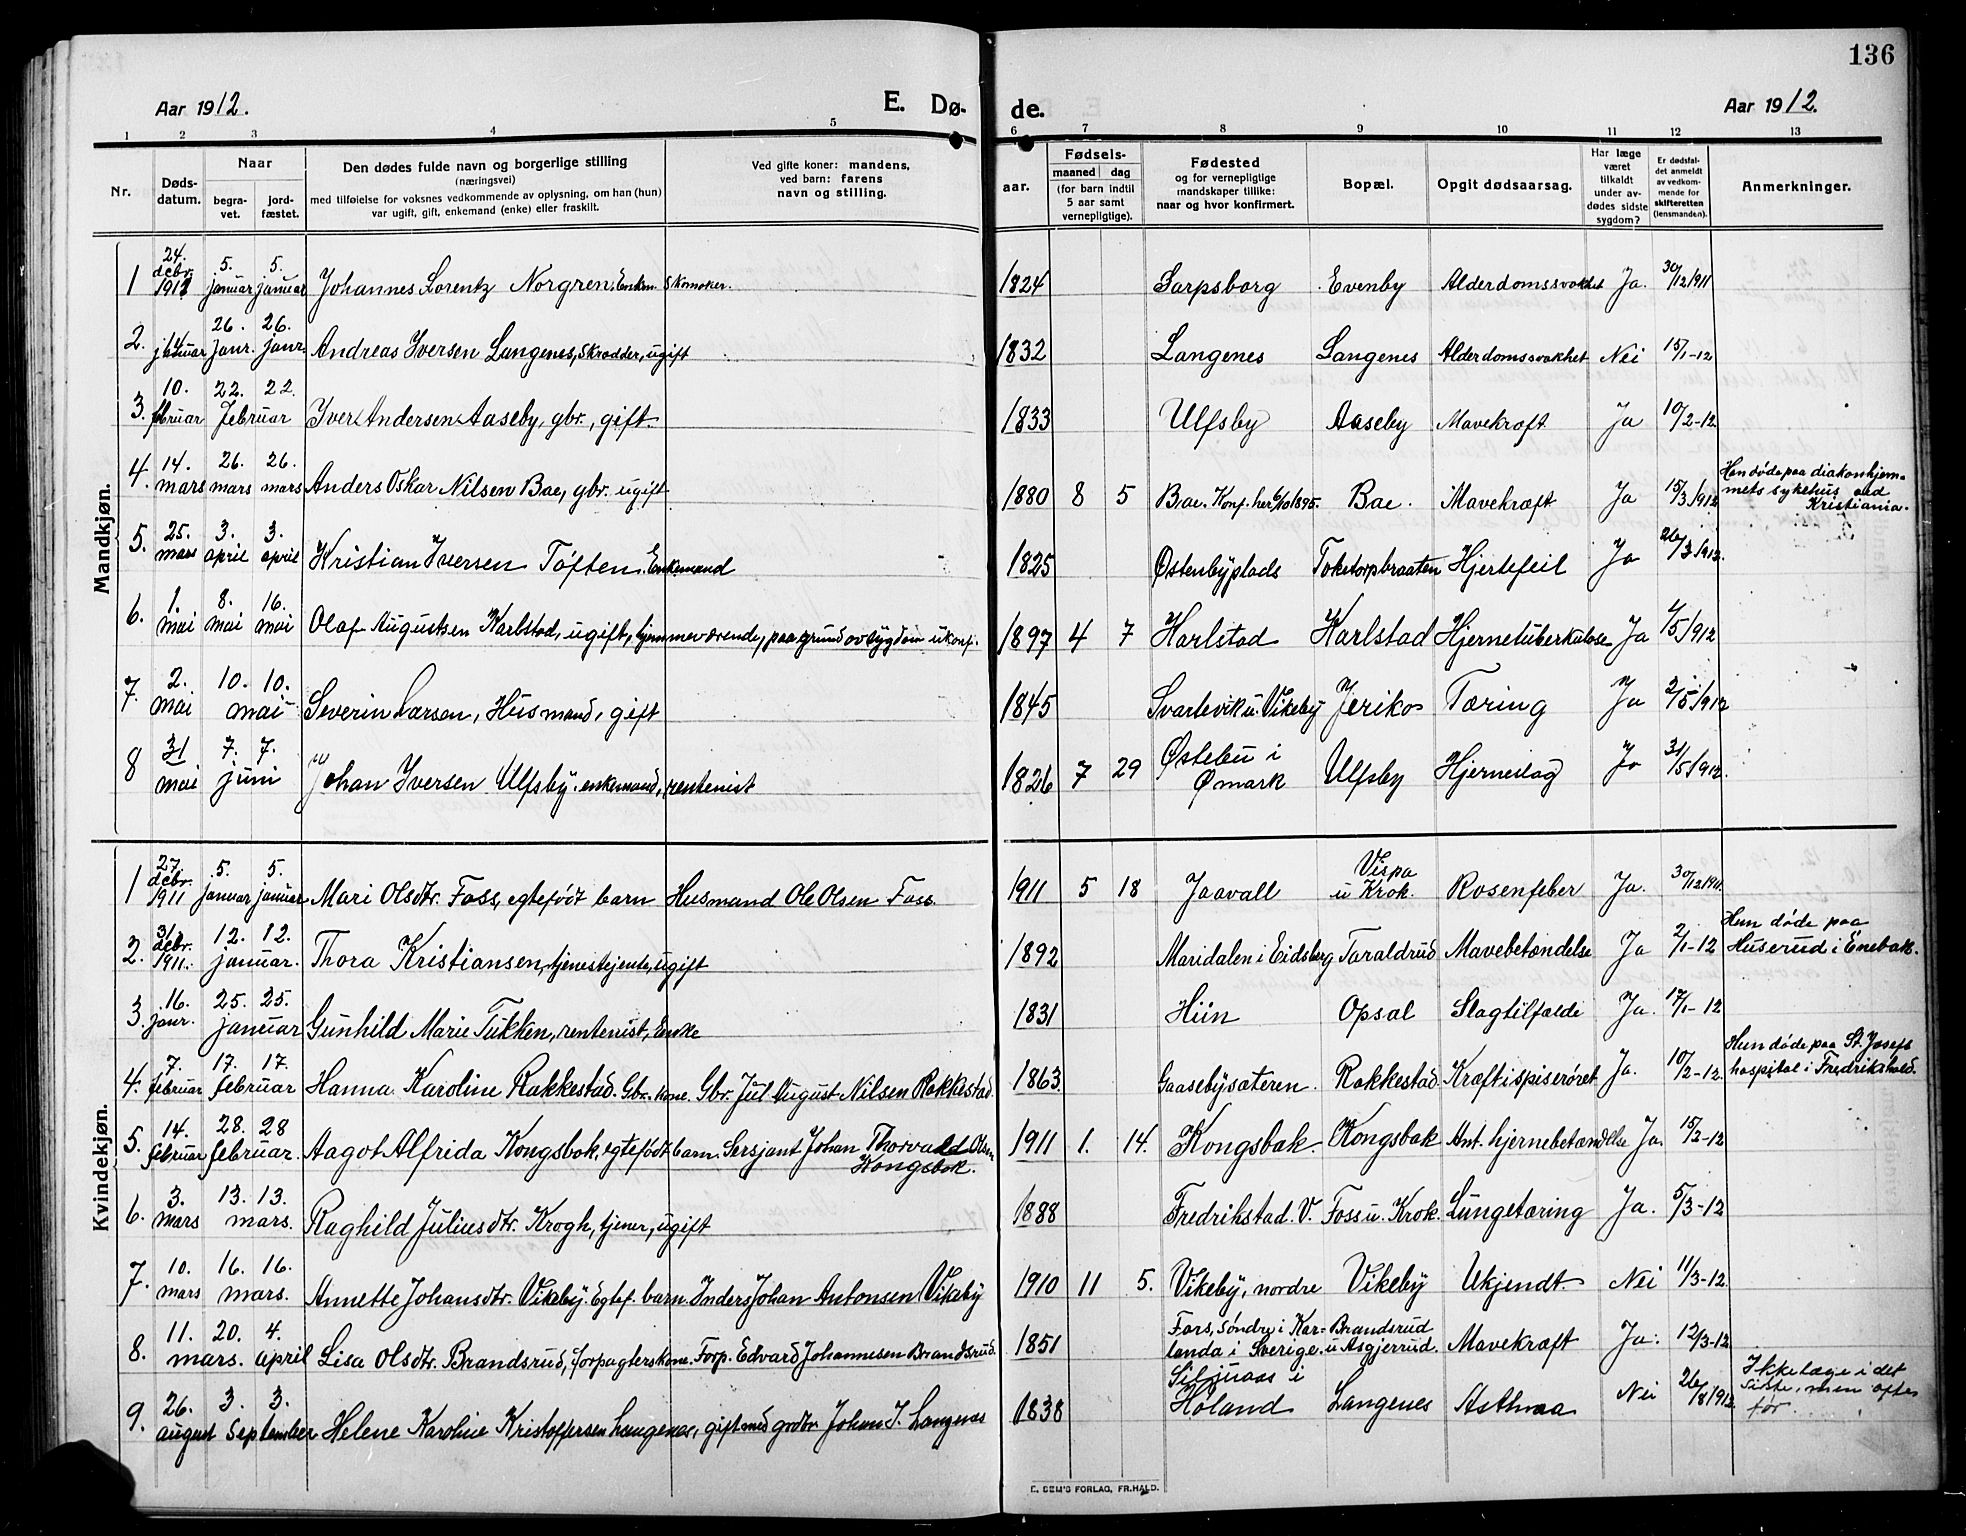 136
Aar 1912.
E. Dø-
de.
Aar 1912.
1 2 3 4 5 6 7 8 9 10 11 12 13
Nr.
Døds-
datum.
Naar
begra-
vet.
jord-
fæstet.
Den dødes fulde navn og borgerlige stilling
(næringsvei)
med tilføielse for voksnes vedkommende av oplysning, om han (hun)
var ugift, gift, enkemand (enke) eller fraskilt.
Ved gifte koner: mandens,
ved barn: farens
navn og stilling.
aar.
Fødsels-
maaned dag
(for barn indtil
5 aar samt
vernepligtige).
Fødested
og for vernepligtige
mandskaper tillike:
naar og hvor konfirmert.
Bopæl.
Opgit dødsaarsag.
Har læge
været
tilkaldt
under av-
dødes sidste
sygdom?
Er dødsfal-
det anmeldt
av vedkom-
mende for
skifteretten
(lensmanden).
Anmerkninger.
Mandkjøn.
1 24. debr. 1911 5. januar 5. januar Johannes Lorentz Norgren, Enkm. Skomaker. 1824 Sarpsborg Evenby Alderdomssvakhet Ja. 30/12 1911
2. januar 26. Janr. 26. janr. Andreas Iversen Langenes, Skrædder, ugift 1832 Langenes Langenes Alderdomssvakhet Nei 15/1-12
3. 10. februar 22. 22. Februar Iver Andersen Aaseby, gbr., gift 1833 Ulfsby Aaseby Mavekræft Ja 10/2-12
4. 14. mars 26. mars 26. mars Anders Oskar Nilsen Bae, gbr. ugift 1880 8 5 Bae. Konf. her 6/10 1895. Bae. Mavekræft Ja 15/3 1912 Han døde paa diakonhjem-
mets sykehus ved
Kristiania.
5. 25. mars 3. april 3. april Kristian Iversen Tøften. Enkemand 1825 Østenbyplads Toketorpbraaten Hjertefeil Ja 26/3 1912.
6. 1. mai 8. mai 16. mai Olaf Augustsen Karlstad, ugift, hjemmeværende, paa grund av sygdom ukonf. 1897 4 7 Karlstad Karlstad Hjernetuberkulose Ja /5 1912
7. 2. mai 10. 10. mai Severin Larsen, Husmand, gift 1845 Svartevik u. Vikeby Jeriko Tæring Ja 2/5 1912
8 31 mai 7. 7. juni Johan Iversen Ulfsby. enkemand, rentenist 1826 7 29 Østebu i
Ømark Ulfsby Hjerneslag Ja 31/5 1912.
Kvindekjøn.
1 27 debr. 1911 5. januar 5. januar Mari Olsdtr. Foss, egtefødt barn Husmand Ole Olsen Foss 1911 5 18 Jaavall Vispa
u Krok. Rosenfeber Ja. 30/12 1911.
2. 31 debr. 1911. 12. 12. januar. Thora Kristiansen, tjenestejente, ugift 1892 Maridalen i Eidsberg Taraldrud Mavebetændelse Ja 2/1-12 Hun døde paa
Huserud i Enebak.
3. 16. janr. 25. 25. januar Gunhild Marie Tukken, rentenist, Enke 1831 Hiin Opsal Slagtilfælde Ja. 17/1-12
4. 7. februar 17. 17. februar Hanna Karoline Rakkestad. Gbr. kone. Gbr. Jul. August Nilsen Rakkestad. 1863 Gaasebysæteren. Rakkestad. Kræft i spiserøret Ja. 10/2-12. Hun døde paa St. Josefs
hospital i Fredrikshald.
5. 14. februar 28. 28 februar. Aagot Alfrida Kongsbak, egtefødt barn. Sersjant Johan Thorvald Olsen
Kongsbak. 1911 1. 14. Kongsbak. Kongsbak Ant. hjernebetændelse Ja. 15/2-12
6. 3. mars 13. 13. mars. Raghild Juliusdtr. Krogh, tjener, ugift 1888 Fredrikstad. V. Foss u. Krok. Lungetæring Ja. 5/3-12
7. 10. mars 16. 16. mars. Annette Johansdtr. Vikeby. Egtef. barn. Inders Johan Antonsen Vikeby 1910 11 5. Vikeby, nordre Vikeby Ukjendt Nei 11/3-12.
8. 11. mars. 20. 4. april Lisa Olsdtr. Brandsrud, forpagterskone. Forp. Edvard Johannesen Brandsrud. 1851 Fors, søndre i Kar-
landa i Sverige. Brandsrud
u Asgjerrud. Mavekræft Ja. 12/3-12
9. 26. august 3. 3. September Helene Karoline Kristoffersen Langenes, gift med grdbr. Johan J. Langenes 1838 Siljuaas i
Høland Langenes Asthma Nei 26/8 1912. Ikke læge i det
siste, men ofte
før.
E. SEM'S FORLAG, FR.HALD.